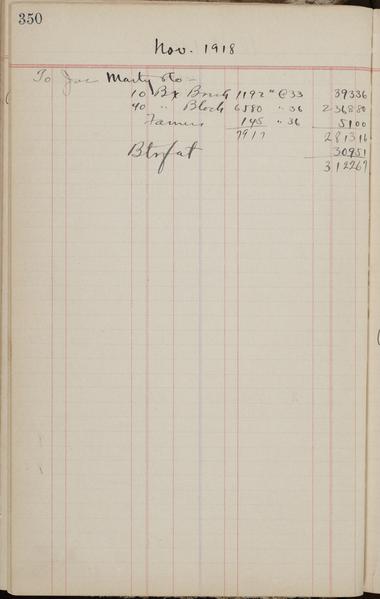 350
Nov. 1918
To Joe Marty Co -
10 Bx Brick 1192 " @ 33 39336
40 " Block 6580 " 36 236880
Farmers 145 " 36 5100
7917 281316
Btrfat 30951
312267